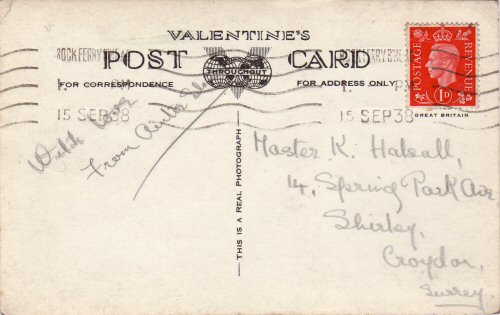 VALENTINE'S
POST CARD
THROUGHOUT
FOR CORRESPONDENCE
FOR ADDRESS ONLY
ROCK FERRY
15 SEP 38
15 SEP 38
POSTAGE
REVENUE
1D
GREAT BRITAIN
With love
From
THIS IS A REAL PHOTOGRAPH
Master K. Halsall,
14, Spring Park Av
Shirley,
Croydon,
Surrey.